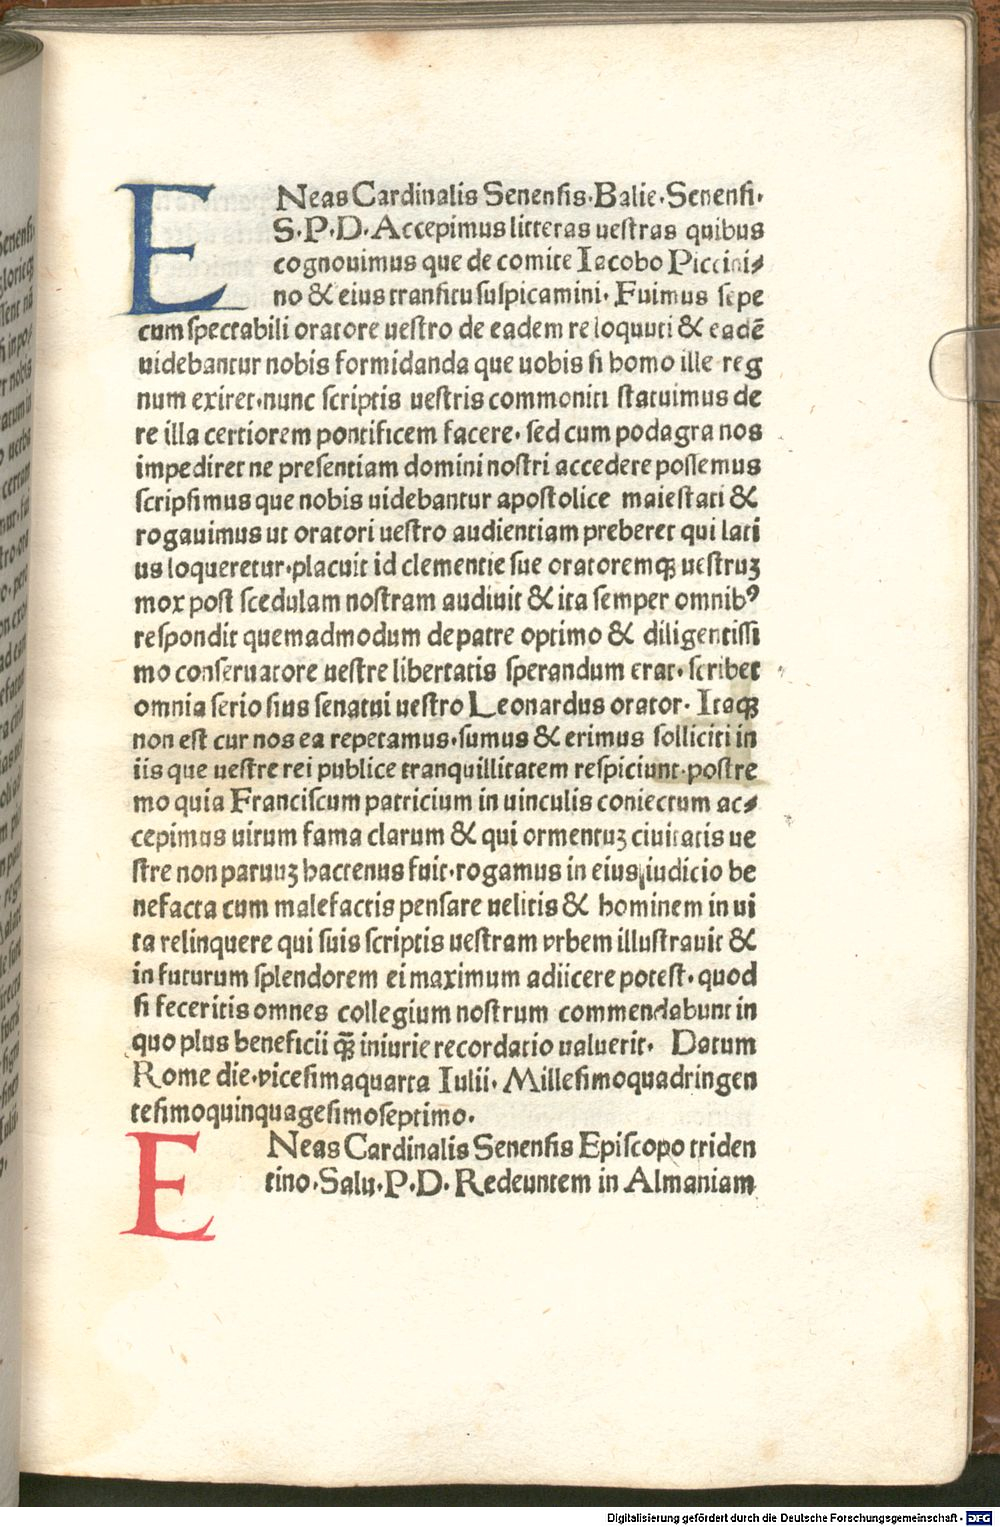 ENeas Cardinalis Senensis·Balie·Senensi·
S·P·D·Accepimus litteras uestras quibus
cognouimus que de comite Iacobo Piccini⸗
no & eius transitu suspicamini· Fuimus sepe
cum spectabili oratore uestro de eadem re loquuti & eadē
uidebantur nobis formidanda que uobis si homo ille reg
num exiret·nunc scriptis uestris commoniti statuimus de
re illa certiorem pontificem facere· sed cum podagra nos
impediret ne presentiam domini nostri accedere possemus
scripsimus que nobis uidebantur apostolice maiestati &
rogauimus ut oratori uestro audientiam preberet qui lati
us loqueretur·placuit id clementie sue oratoremqꝫ uestruꝫ
mox post scedulam nostram audiuit & ita semper omnibꝰ
respondit quemadmodum de patre optimo & diligentissi
mo conseruatore uestre libertatis sperandum erat·scribet
omnia serio sius senatui uestro Leonardus orator· Itaqꝫ
non est cur nos ea repetamus·sumus & erimus solliciti in
iis que uestre rei publice tranquillitatem respiciunt·postre
mo quia Franciscum patricium in uinculis coniectum ac⸗
cepimus uirum fama clarum & qui ormentuꝫ ciuitatis ue
stre non paruuꝫ hactenus fuit·rogamus in eius iudicio be
nefacta cum malefactis pensare uelitis & hominem in ui
ta relinquere qui suis scriptis uestram vrbem illustrauit &
in futurum splendorem ei maximum adiicere potest·quod
si feceritis omnes collegium nostrum commendabunt in
quo plus beneficii qꝫ̄ iniurie recordatio ualuerit· Datum
Rome die·vicesimaquarta Iulii· Millesimoquadringen
tesimoquinquagesimoseptimo·
ENeas Cardinalis Senensis Episcopo triden
tino·Salu·P·D·Redeuntem in Almaniam
Digitalisierung gefördert durch die Deutsche Forschungsgemeinschaft - DFG